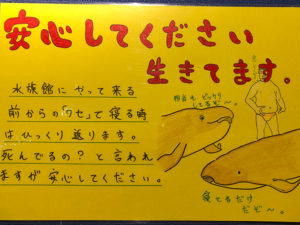 安心してください
生きてます。
水族館にやって来る
前からの「クセ」で寝る時
はひっくり返ります。
死んでるの?と言われ
ますが安心してください。
担当も ビックリ
してるぞ〜。
寝てるだけ
だぞ〜。